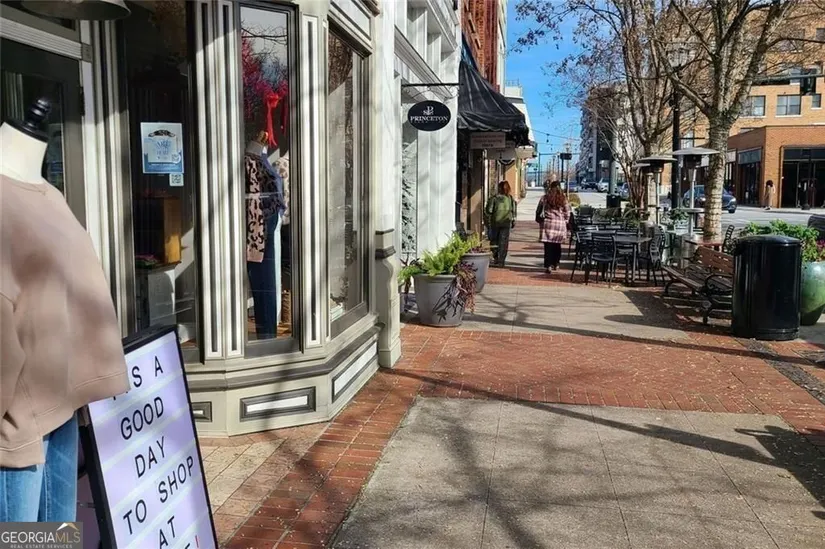 PRINCETON
IT'S A
GOOD
DAY
TO SHOP
AT
GEORGIAMLS
REAL ESTATE SERVICES